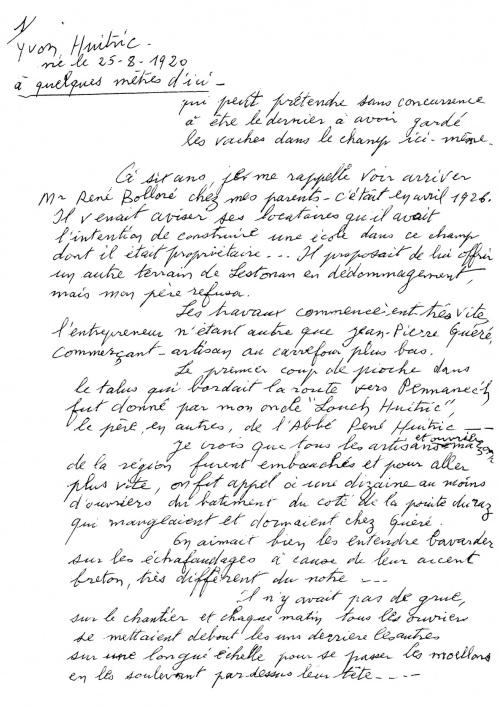 1/
Yvon Huitric.
né le 25-8-1920
à quelques mètres d'ici -
qui peut prétendre sans concurrence
à être le dernier à avoir gardé
les vaches dans le champ ici-même.
A six ans, je me rappelle voir arriver
Mr René Bolloré chez mes parents - c'était en avril 1926.
Il venait aviser ses locataires qu'il avait
l'intention de construire une école dans ce champ
dont il était propriétaire... Il proposait de lui offrir
un autre terrain de Lestonan en dédommagement,
mais mon père refusa.
Les travaux commencèrent très vite,
l'entrepreneur n'étant autre que Jean-Pierre Quéré,
commerçant-artisan au carrefour plus bas.
Le premier coup de pioche dans
le talus qui bordait la route vers Pennanec'h
fut donné par mon oncle "Louch Huitric",
le père, en autres, de l'Abbé René Huitric --
Je crois que tous les artisans et ouvriers maçons
de la région furent embauchés et pour aller
plus vite, on fit appel à une dizaine au moins
d'ouvriers du batiment du coté de la pointe du raz
qui mangeaient et dormaient chez Quéré.
On aimait bien les entendre bavarder
sur les échafaudages à cause de leur accent
breton, très différent du notre ---
il n'y avait pas de grue,
sur le chantier et chaque matin, tous les ouvriers
se mettaient debout les uns derrière les autres
sur une longue échelle pour se passer les moellons
en les soulevant par dessus leur tête ----